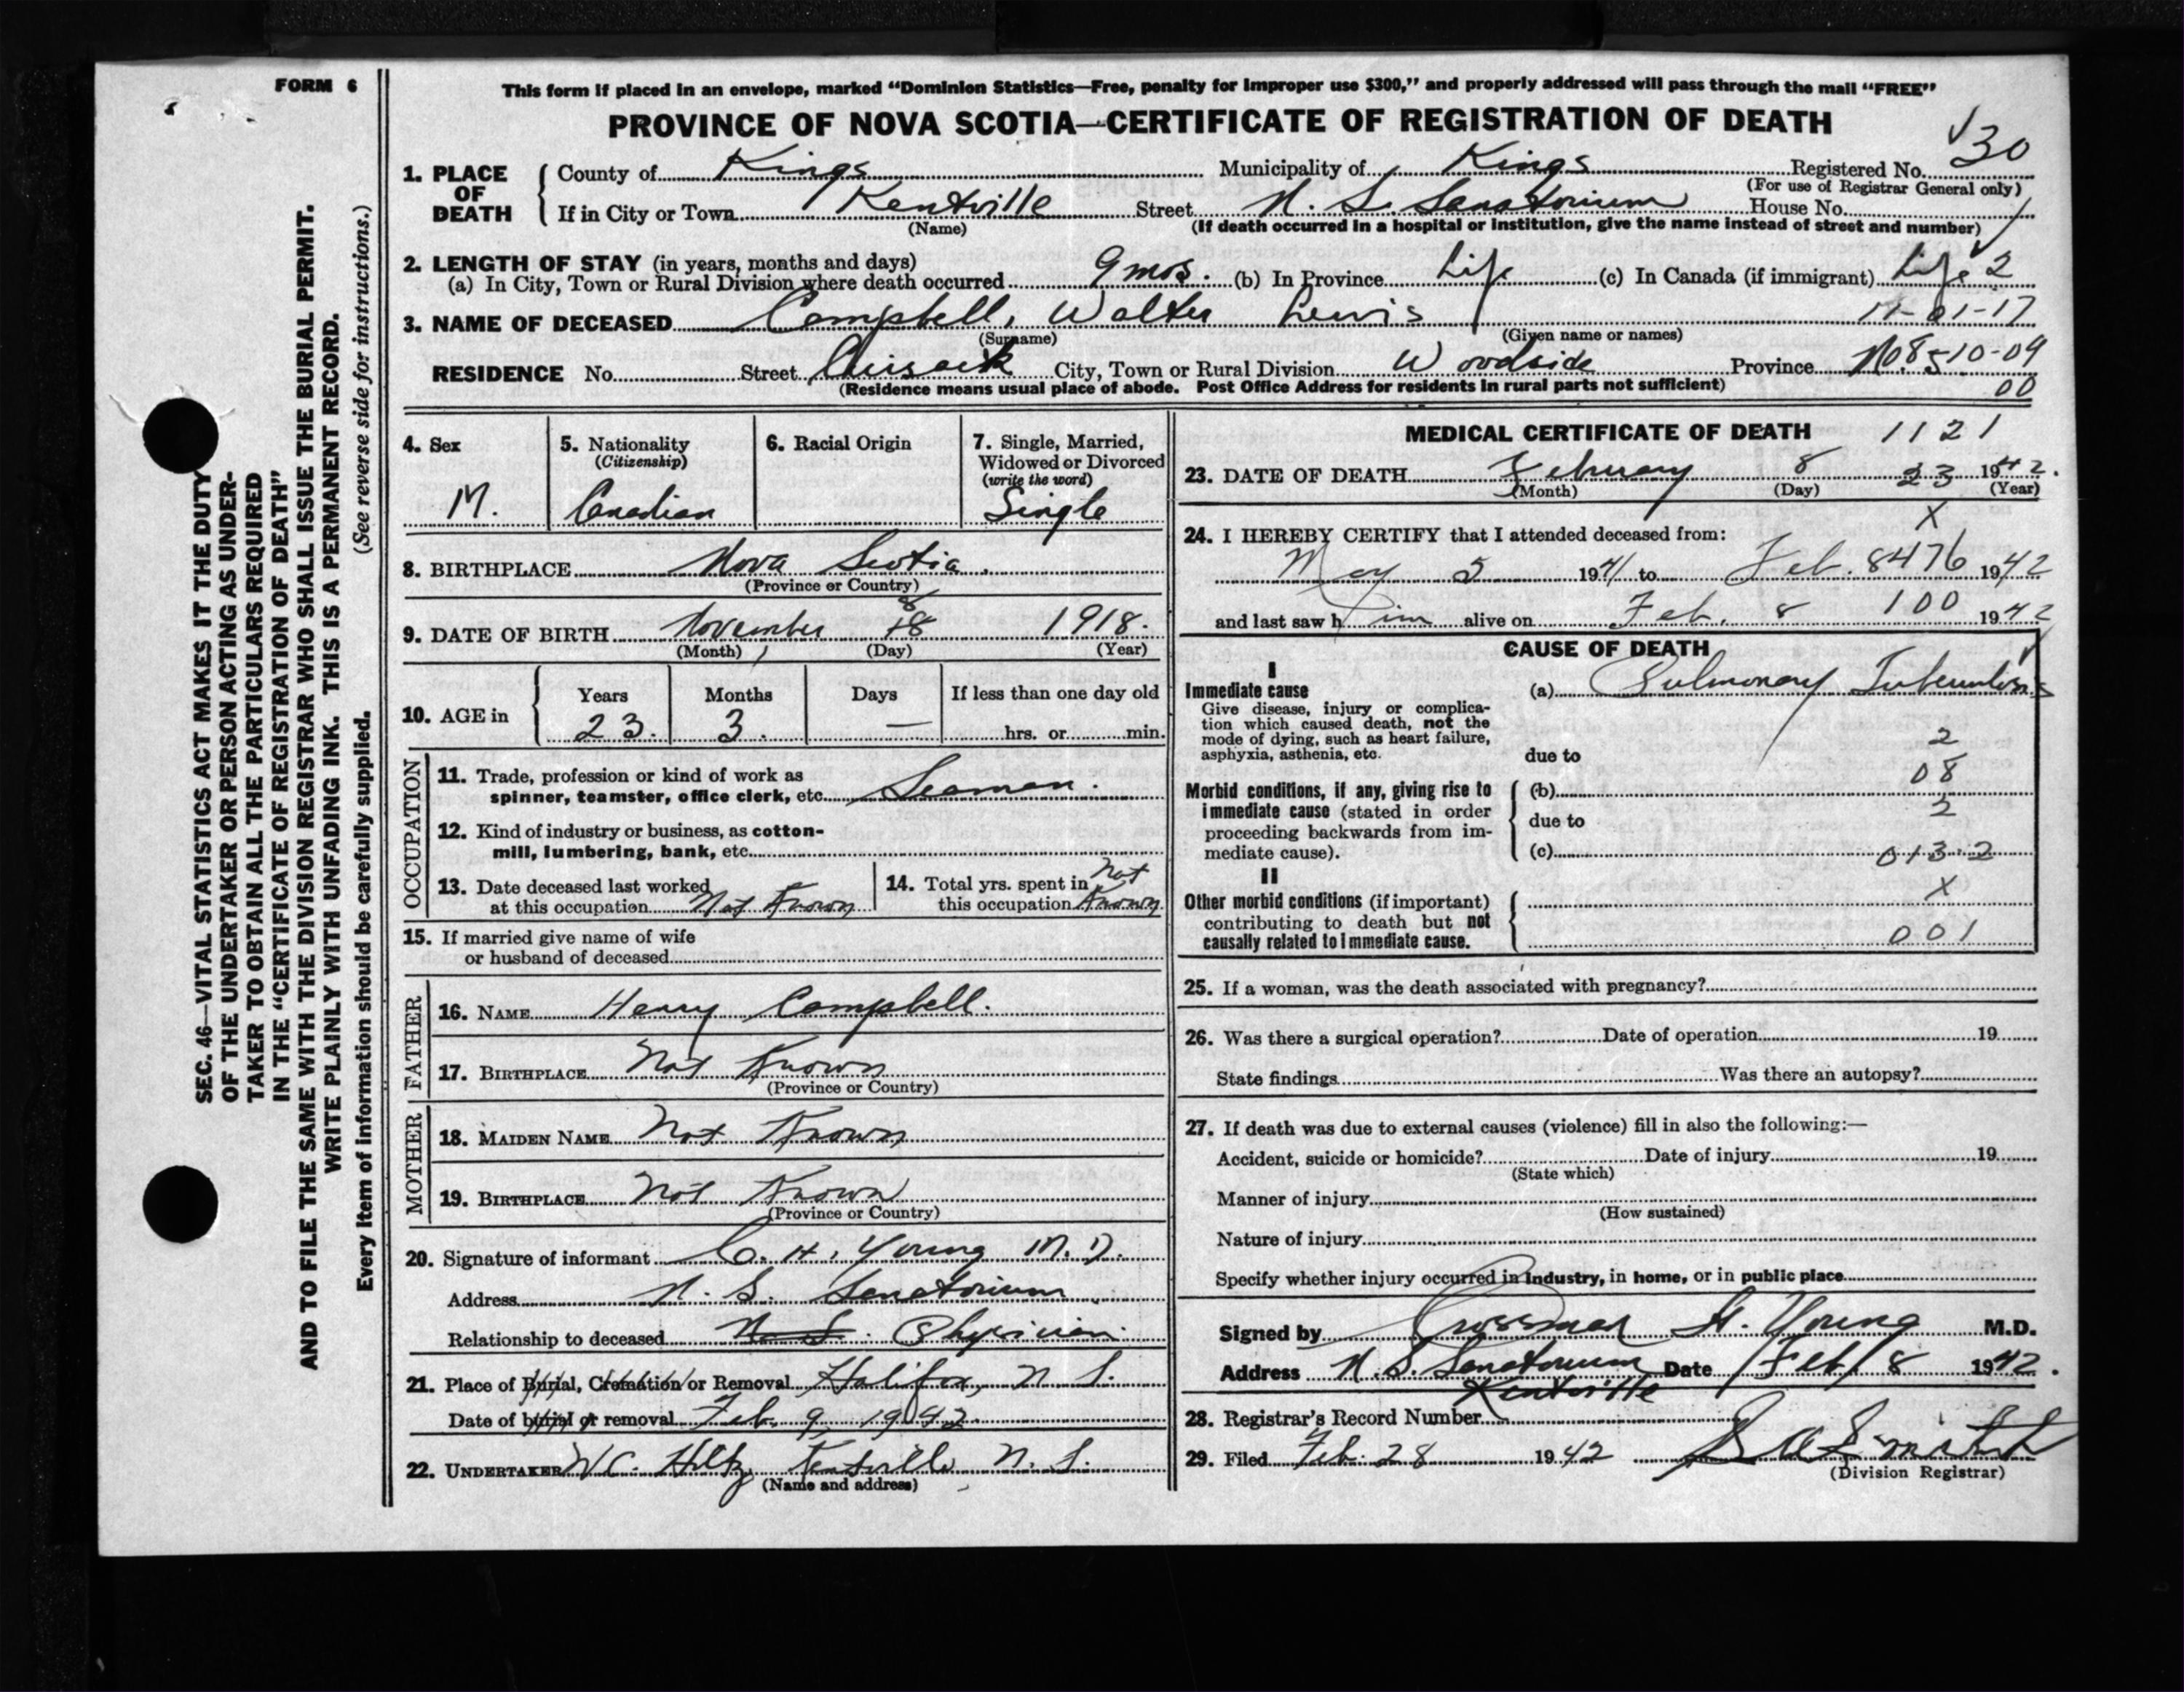 FORM 6
This form if placed in an envelope, marked "Dominion Statistics—Free, penalty for improper use $300," and properly addressed will pass through the mail "FREE"
PROVINCE OF NOVA SCOTIA—CERTIFICATE OF REGISTRATION OF DEATH
1. PLACE OF DEATH County of Kings Municipality of Kings Registered No. 30
(For use of Registrar General only)
If in City or Town Kentville Street N. S. Sanatorium House No.
(Name) (If death occurred in a hospital or institution, give the name instead of street and number)
2. LENGTH OF STAY (in years, months and days)
(a) In City, Town or Rural Division where death occurred 9 mos. (b) In Province Life (c) In Canada (if immigrant) Life 2
3. NAME OF DECEASED Campbell, Walter Lewis 11-01-17
(Surname) (Given name or names)
RESIDENCE No. Street City, Town or Rural Division Woodside Province 10-09
(Residence means usual place of abode. Post Office Address for residents in rural parts not sufficient) 00
4. Sex M.
5. Nationality (Citizenship) Canadian
6. Racial Origin
7. Single, Married, Widowed or Divorced (write the word) Single
8. BIRTHPLACE Nova Scotia.
(Province or Country)
9. DATE OF BIRTH November 8 1918.
(Month) (Day) (Year)
10. AGE in Years 23. Months 3. Days — If less than one day old hrs. or min.
OCCUPATION
11. Trade, profession or kind of work as spinner, teamster, office clerk, etc. Seaman.
12. Kind of industry or business, as cotton-mill, lumbering, bank, etc.
13. Date deceased last worked at this occupation Not Known
14. Total yrs. spent in this occupation Not Known
15. If married give name of wife or husband of deceased
FATHER
16. NAME Henry Campbell.
17. BIRTHPLACE Not Known
(Province or Country)
MOTHER
18. MAIDEN NAME Not Known
19. BIRTHPLACE Not Known
(Province or Country)
20. Signature of informant C. H. Young M. D.
Address N. S. Sanatorium
Relationship to deceased N. S. Physician.
21. Place of Burial, Cremation or Removal Halifax, N. S.
Date of burial or removal Feb. 9, 1942
22. UNDERTAKER W.C. Hiltz Kentville N. S.
(Name and address)
MEDICAL CERTIFICATE OF DEATH 1121
23. DATE OF DEATH February 8 23 1942.
(Month) (Day) (Year)
X
24. I HEREBY CERTIFY that I attended deceased from:
May 5 1941 to Feb. 8 476 1942
and last saw him alive on Feb. 8 100 1942
CAUSE OF DEATH
I
Immediate cause
Give disease, injury or complication which caused death, not the mode of dying, such as heart failure, asphyxia, asthenia, etc.
(a) Pulmonary Tuberculosis
2
due to
08
Morbid conditions, if any, giving rise to immediate cause (stated in order proceeding backwards from immediate cause).
(b)
2
due to
(c) 013.2
II
X
Other morbid conditions (if important) contributing to death but not causally related to immediate cause.
001
25. If a woman, was the death associated with pregnancy?
26. Was there a surgical operation? Date of operation 19
State findings Was there an autopsy?
27. If death was due to external causes (violence) fill in also the following:—
Accident, suicide or homicide? Date of injury 19
(State which)
Manner of injury
(How sustained)
Nature of injury
Specify whether injury occurred in industry, in home, or in public place
Signed by H. Young M.D.
Address N. S. Sanatorium Date Feb 8 1942.
Kentville
28. Registrar's Record Number
29. Filed Feb. 28 1942
(Division Registrar)
SEC. 46—VITAL STATISTICS ACT MAKES IT THE DUTY
OF THE UNDERTAKER OR PERSON ACTING AS UNDER-
TAKER TO OBTAIN ALL THE PARTICULARS REQUIRED
IN THE "CERTIFICATE OF REGISTRATION OF DEATH"
AND TO FILE THE SAME WITH THE DIVISION REGISTRAR WHO SHALL ISSUE THE BURIAL PERMIT.
WRITE PLAINLY WITH UNFADING INK. THIS IS A PERMANENT RECORD.
Every item of information should be carefully supplied. (See reverse side for instructions.)